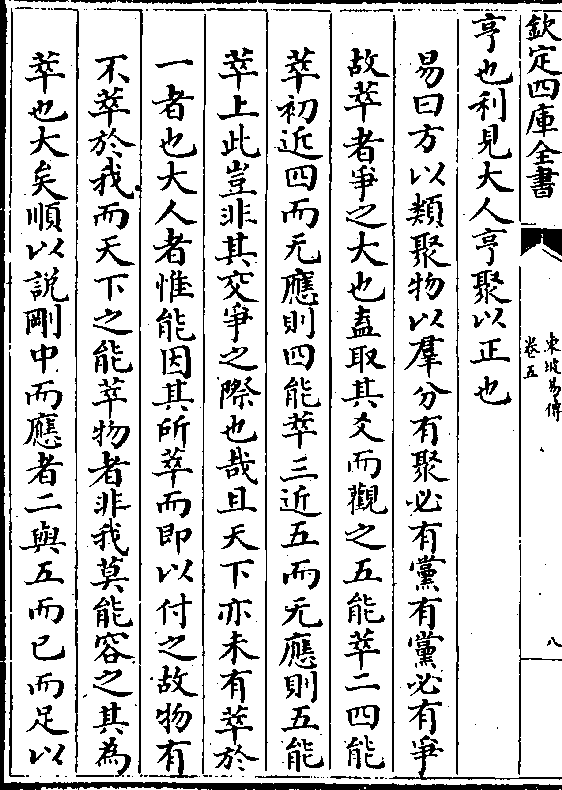 欽定四庫全書
東坡易傳
卷五
八
亨也利見大人亨聚以正也
易曰方以類聚物以羣分有聚必有黨有黨必有爭
故萃者爭之大也盍取其爻而觀之五能萃二四能
萃初近四而无應則四能萃三近五而无應則五能
萃上此豈非其交爭之際也哉且天下亦未有萃於
一者也大人者惟能因其所萃而即以付之故物有
不萃於我而天下之能萃物者非我莫能容之其為
萃也大矣順以說剛中而應者二與五而已而足以